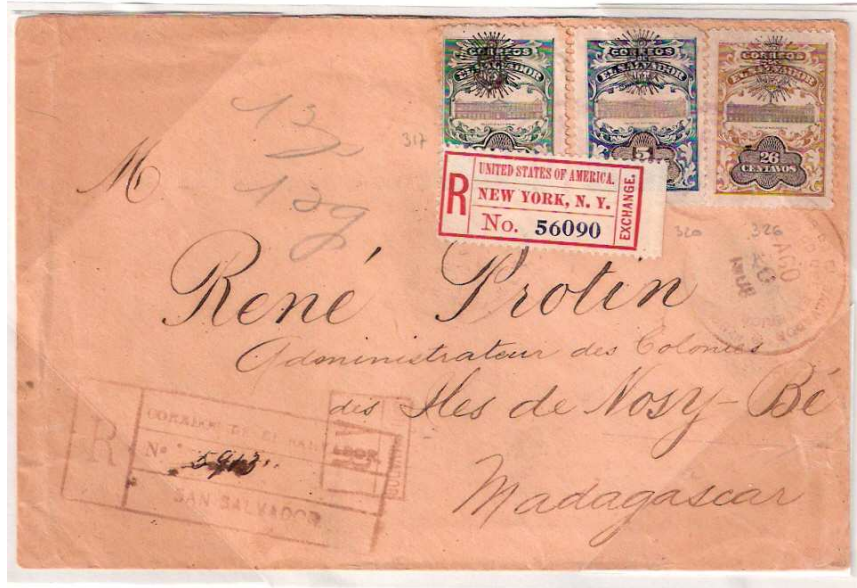 CORREOS
EL SALVADOR
CORREOS
EL SALVADOR
CORREOS
EL SALVADOR
26
CENTAVOS
317
R
UNITED STATES OF AMERICA.
NEW YORK, N. Y.
No. 56090
EXCHANGE.
320
326
AGO
M
René Protin
Administrateur des Colonies
des Iles de Nosy-Bé
Madagascar
R
CORREOS DE EL SALVADOR
No
SAN SALVADOR